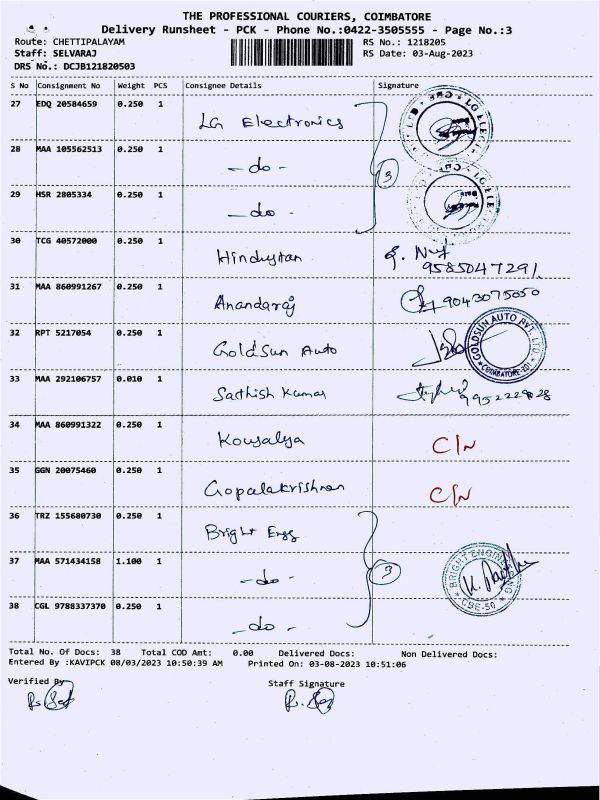 THE PROFESSIONAL COURIERS, COIMBATORE
Delivery Runsheet - PCK - Phone No.:0422-3505555 - Page No.:3
Route: CHETTIPALAYAM RS No.: 1218205
Staff: SELVARAJ RS Date: 03-Aug-2023
DRS No.: DCJB121820503
S No Consignment No Weight PCS Consignee Details Signature
27 EDQ 20584659 0.250 1 LG Electronics
28 MAA 105562513 0.250 1 -do-
3
29 HSR 2805334 0.250 1 -do-
30 TCG 40572000 0.250 1 Hindustan
9585047291
31 MAA 860991267 0.250 1 Anandaraj 9043075050
32 RPT 5217054 0.250 1 GoldSun Auto GOLDSUN AUTO PVT. LTD. COIMBATORE-201
33 MAA 292106757 0.010 1 Sathish Kumar
34 MAA 860991322 0.250 1 Kousalya C/N
35 GGN 20075460 0.250 1 Gopalakrishnan C/N
36 TRZ 155680730 0.250 1 Bright Engg
37 MAA 571434158 1.100 1 -do- 3 BRIGHT ENGINEERING CBE-50
38 CGL 9788337370 0.250 1 -do-
Total No. Of Docs: 38 Total COD Amt: 0.00 Delivered Docs: Non Delivered Docs:
Entered By :KAVIPCK 08/03/2023 10:50:39 AM Printed On: 03-08-2023 10:51:06
Verified By Staff Signature